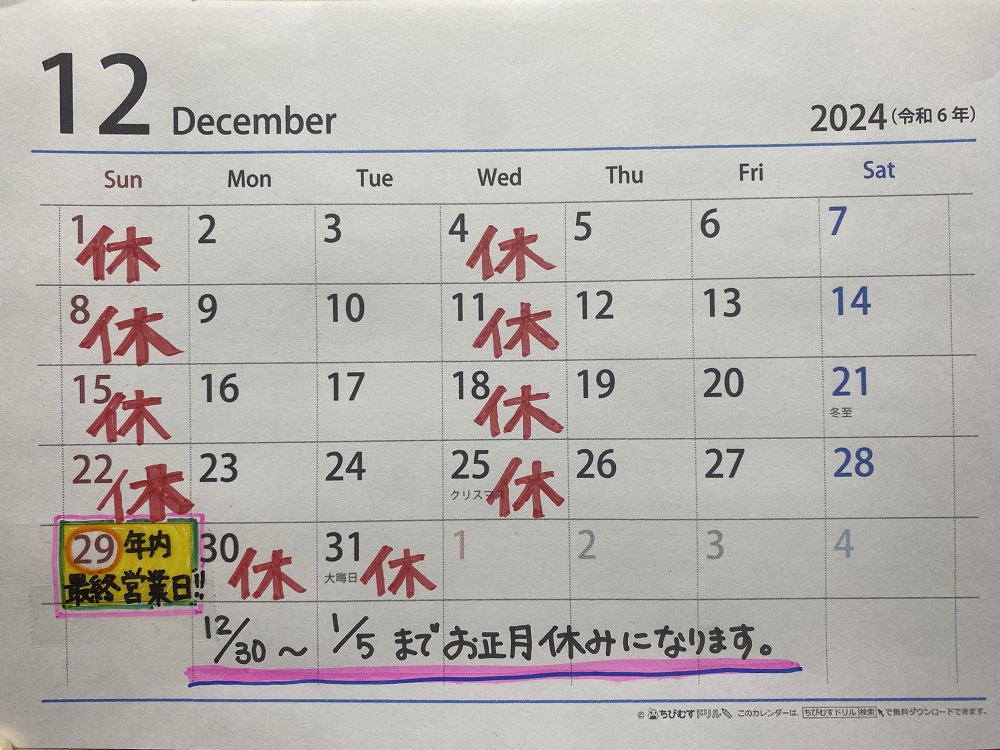 12 December 2024(令和6年)
Sun Mon Tue Wed Thu Fri Sat
1 休 2 3 4 休 5 6 7
8 休 9 10 11 休 12 13 14
15 休 16 17 18 休 19 20 21
冬至
22 休 23 24 25 休 26 27 28
クリスマス
29 年内 30 休 31 休 1 2 3 4
大晦日
最終営業日!!
12/30 ～ 1/5 までお正月休みになります。
© ちびむすドリル このカレンダーは、ちびむすドリル 検索 で無料ダウンロードできます。